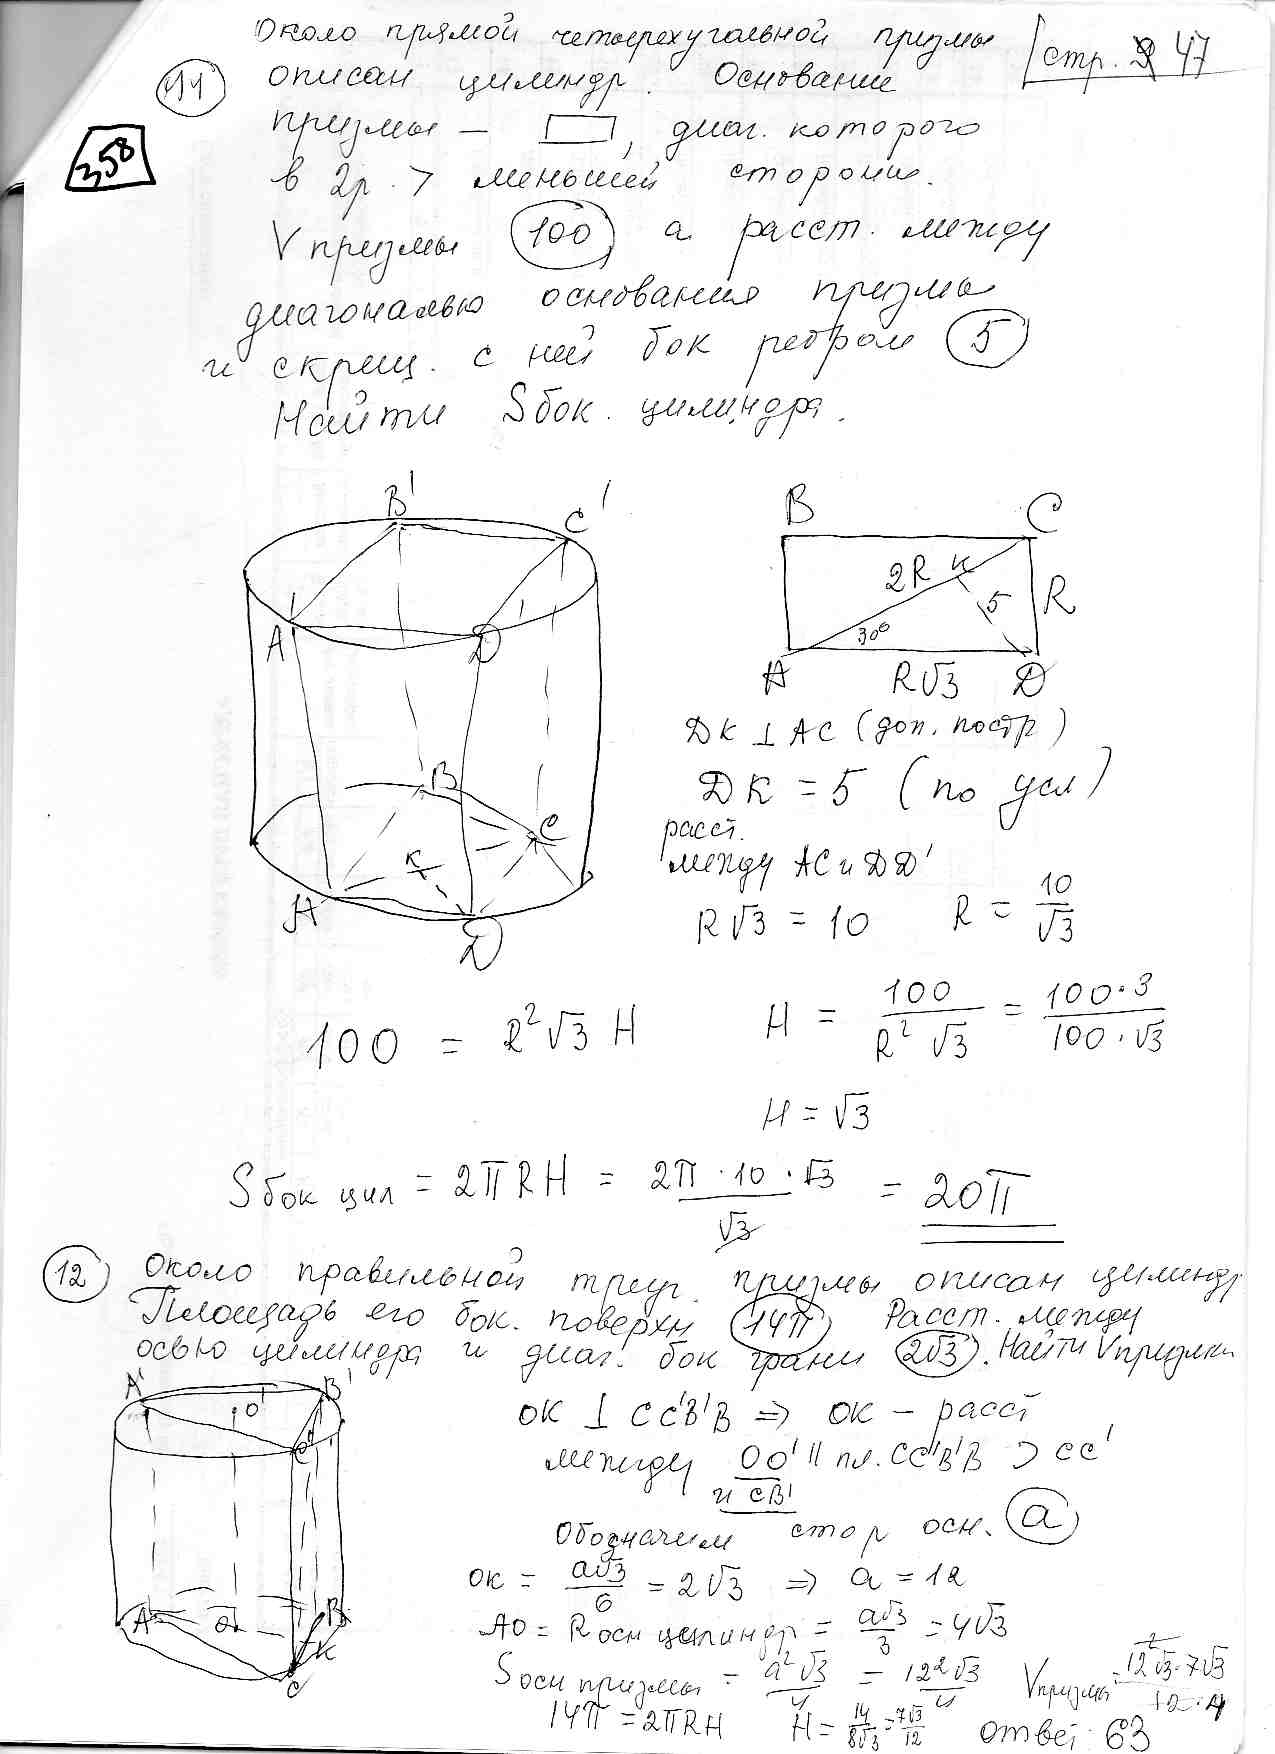 Около прямой четырехугольной призмы
стр. 47
11 описан цилиндр. Основание
358
призмы — , диаг. которого
в 2р. > меньшей стороны.
V призмы 100 а расст. между
диагональю основания призмы
и скрещ. с ней бок ребром 5
Найти Sбок. цилиндра.
B' C'
A' D'
B C
A D
K
B C
2R K
5 R
30°
A R√3 D
DK ⊥ AC (доп. постр)
DK = 5 (по усл)
расст.
между AC и DD'
R√3 = 10 R = 10/√3
100 = R²√3 H H = 100/R²√3 = 100·3/100·√3
H = √3
Sбок цил = 2πRH = 2π·10·√3/√3 = 20π
12 Около правильной треуг. призмы описан цилиндр
Площадь его бок. поверхн 14π Расст. между
осью цилиндра и диаг. бок грани 2√3. Найти Vпризмы
A' O' B'
C'
A O B
K
C
OK ⊥ CC'B'B ⇒ OK – расст
между OO' || пл. CC'B'B ⊃ CC'
и CB'
Обозначим стор осн. a
OK = a√3/6 = 2√3 ⇒ a = 12
AO = R осн цилиндр = a√3/3 = 4√3
Sосн призмы = a²√3/4 = 12²√3/4 Vпризмы = 12²√3·7√3/12·4
14π = 2πRH H = 14/8√3 = 7√3/12 ответ: 63